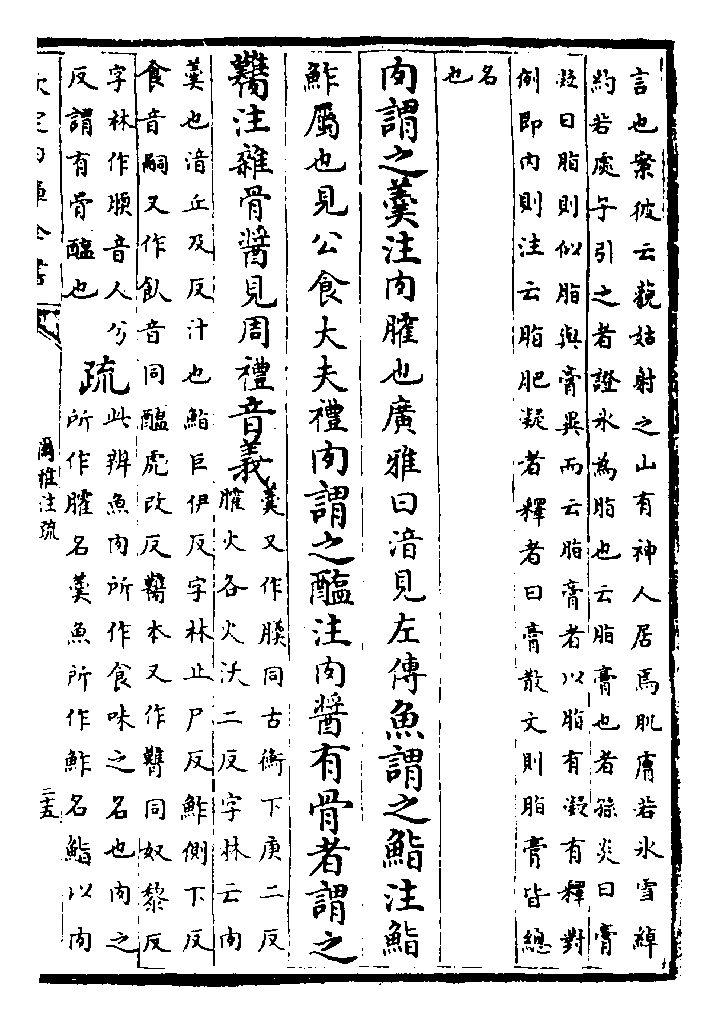 言也案彼云藐姑射之山有神人居焉肌膚若氷雪綽
約若處子引之者證氷為脂也云脂膏也者孫炎曰膏
凝曰脂則似脂與膏異而云脂膏者以脂有凝有釋對
例即内則注云脂肥凝者釋者曰膏散文則脂膏皆總
名
也
肉謂之羮注肉臛也廣雅曰湆見左傳魚謂之鮨注鮨
鮓屬也見公食大夫禮肉謂之醢注肉醬有骨者謂之
臡注雜骨醬見周禮音義
羮又作膷同古衡下庚二反
臛火各火沃二反字林云肉
羮也湆丘及反汁也鮨巨伊反字林止尸反鮓側下反
食音嗣又作飤音同醢虎改反臡本又作䡾同奴黎反
字林作腝音人兮
反謂有骨醢也
疏
此辨魚肉所作食味之名也肉之
所作臛名羮魚所作鮓名鮨以肉
欽定四庫全書
爾雅注疏
二十五